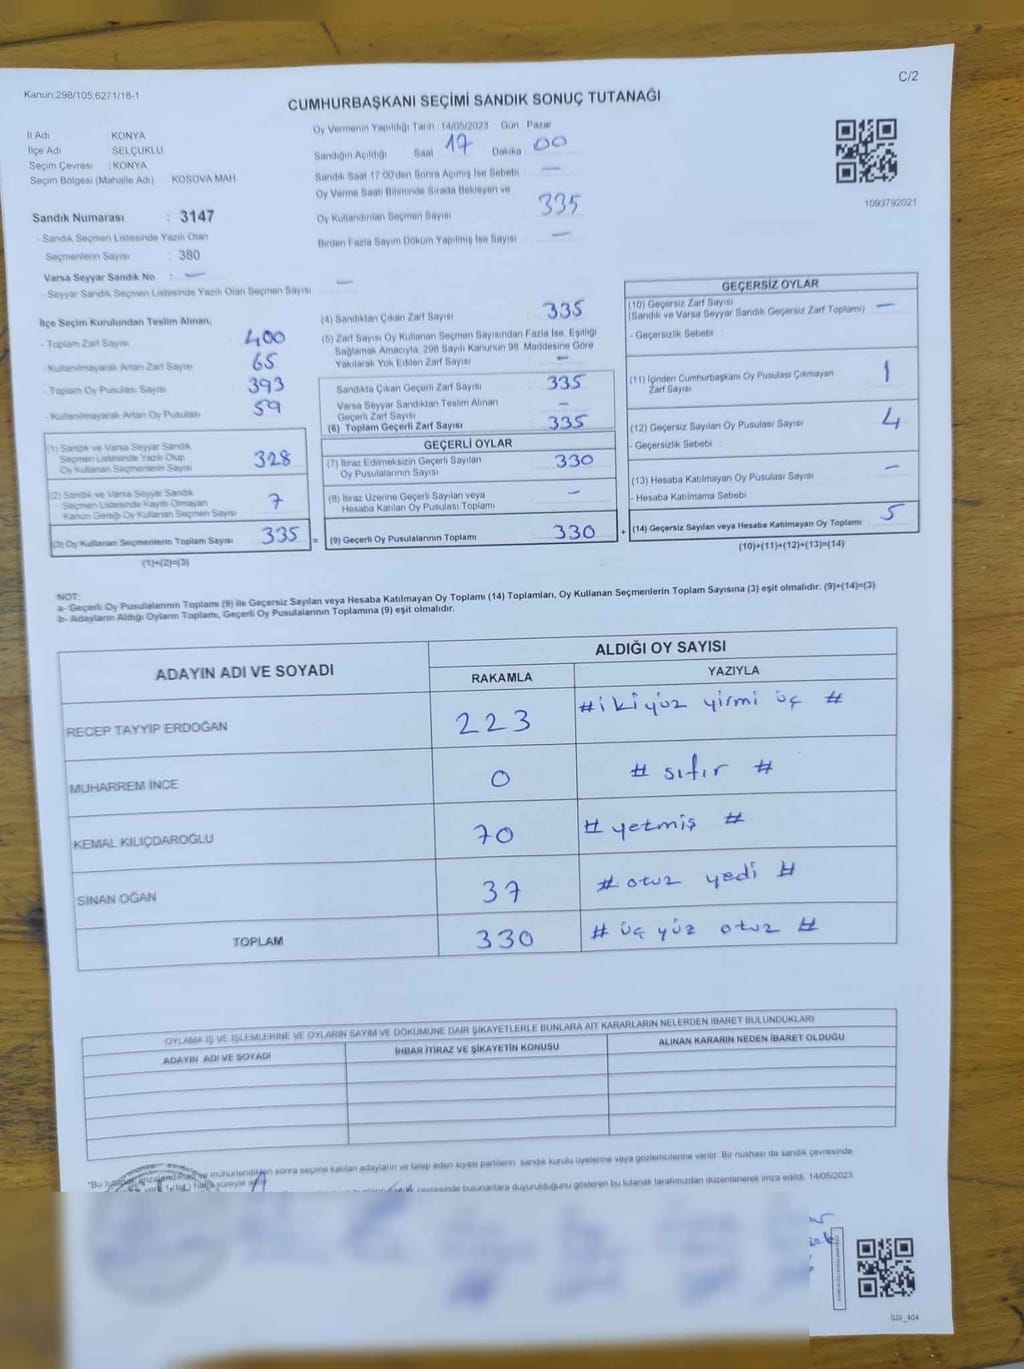 C/2
Kanun:298/105;6271/18-1
CUMHURBAŞKANI SEÇİMİ SANDIK SONUÇ TUTANAĞI
İl Adı KONYA
İlçe Adı SELÇUKLU
Seçim Çevresi : KONYA
Seçim Bölgesi (Mahalle Adı) KOSOVA MAH
Sandık Numarası : 3147
- Sandık Seçmen Listesinde Yazılı Olan
Seçmenlerin Sayısı : 380
Varsa Seyyar Sandık No : —
- Seyyar Sandık Seçmen Listesinde Yazılı Olan Seçmen Sayısı —
Oy Vermenin Yapıldığı Tarih : 14/05/2023 Gün Pazar
Sandığın Açıldığı Saat 17 Dakika 00
Sandık Saat 17:00'den Sonra Açılmış İse Sebebi —
Oy Verme Saati Bitiminde Sırada Bekleyen ve
Oy Kullandırılan Seçmen Sayısı 335
Birden Fazla Sayım Döküm Yapılmış İse Sayısı —
1093792021
İlçe Seçim Kurulundan Teslim Alınan;
- Toplam Zarf Sayısı 400
- Kullanılmayarak Artan Zarf Sayısı 65
- Toplam Oy Pusulası Sayısı 393
- Kullanılmayarak Artan Oy Pusulası 59
(1) Sandık ve Varsa Seyyar Sandık
Seçmen Listesinde Yazılı Olup
Oy Kullanan Seçmenlerin Sayısı 328
(2) Sandık ve Varsa Seyyar Sandık
Seçmen Listesinde Kayıtlı Olmayan
Kanun Gereği Oy Kullanan Seçmen Sayısı 7
(3) Oy Kullanan Seçmenlerin Toplam Sayısı 335 =
(1)+(2)=(3)
(4) Sandıktan Çıkan Zarf Sayısı 335
(5) Zarf Sayısı Oy Kullanan Seçmen Sayısından Fazla İse, Eşitliği
Sağlamak Amacıyla, 298 Sayılı Kanunun 98. Maddesine Göre
Yakılarak Yok Edilen Zarf Sayısı —
Sandıkta Çıkan Geçerli Zarf Sayısı 335
Varsa Seyyar Sandıktan Teslim Alınan
Geçerli Zarf Sayısı —
(6) Toplam Geçerli Zarf Sayısı 335
GEÇERLİ OYLAR
(7) İtiraz Edilmeksizin Geçerli Sayılan
Oy Pusulalarının Sayısı 330
(8) İtiraz Üzerine Geçerli Sayılan veya
Hesaba Katılan Oy Pusulası Toplamı —
(9) Geçerli Oy Pusulalarının Toplamı 330 +
GEÇERSİZ OYLAR
(10) Geçersiz Zarf Sayısı
(Sandık ve Varsa Seyyar Sandık Geçersiz Zarf Toplamı) —
- Geçersizlik Sebebi :
(11) İçinden Cumhurbaşkanı Oy Pusulası Çıkmayan
Zarf Sayısı 1
(12) Geçersiz Sayılan Oy Pusulası Sayısı 4
- Geçersizlik Sebebi :
(13) Hesaba Katılmayan Oy Pusulası Sayısı —
- Hesaba Katılmama Sebebi
(14) Geçersiz Sayılan veya Hesaba Katılmayan Oy Toplamı 5
(10)+(11)+(12)+(13)=(14)
NOT:
a- Geçerli Oy Pusulalarının Toplamı (9) ile Geçersiz Sayılan veya Hesaba Katılmayan Oy Toplamı (14) Toplamları, Oy Kullanan Seçmenlerin Toplam Sayısına (3) eşit olmalıdır. (9)+(14)=(3)
b- Adayların Aldığı Oyların Toplamı, Geçerli Oy Pusulalarının Toplamına (9) eşit olmalıdır.
ADAYIN ADI VE SOYADI
ALDIĞI OY SAYISI
RAKAMLA YAZIYLA
RECEP TAYYİP ERDOĞAN 223 #iki yüz yirmi üç #
MUHARREM İNCE 0 # sıfır #
KEMAL KILIÇDAROĞLU 70 # yetmiş #
SİNAN OĞAN 37 # otuz yedi #
TOPLAM 330 # üç yüz otuz #
OYLAMA İŞ VE İŞLEMLERİNE VE OYLARIN SAYIM VE DÖKÜMÜNE DAİR ŞİKAYETLERLE BUNLARA AİT KARARLARIN NELERDEN İBARET BULUNDUKLARI
ADAYIN ADI VE SOYADI İHBAR İTİRAZ VE ŞİKAYETİN KONUSU ALINAN KARARIN NEDEN İBARET OLDUĞU
*Bu ve mühürlendikten sonra seçime katılan adayların ve talep eden siyasi partilerin sandık kurulu üyelerine veya gözlemcilerine verilir. Bir nüshası da sandık çevresinde
hafta süreyle çevresinde bulunanlara duyurulduğunu gösteren bu tutanak tarafımızdan düzenlenerek imza edildi. 14/05/2023
SSI_404